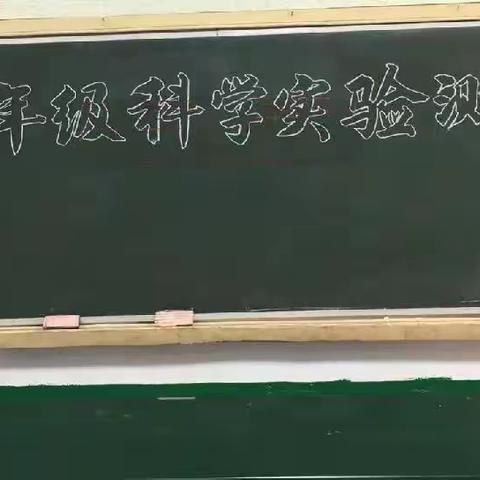 年级科学实验测